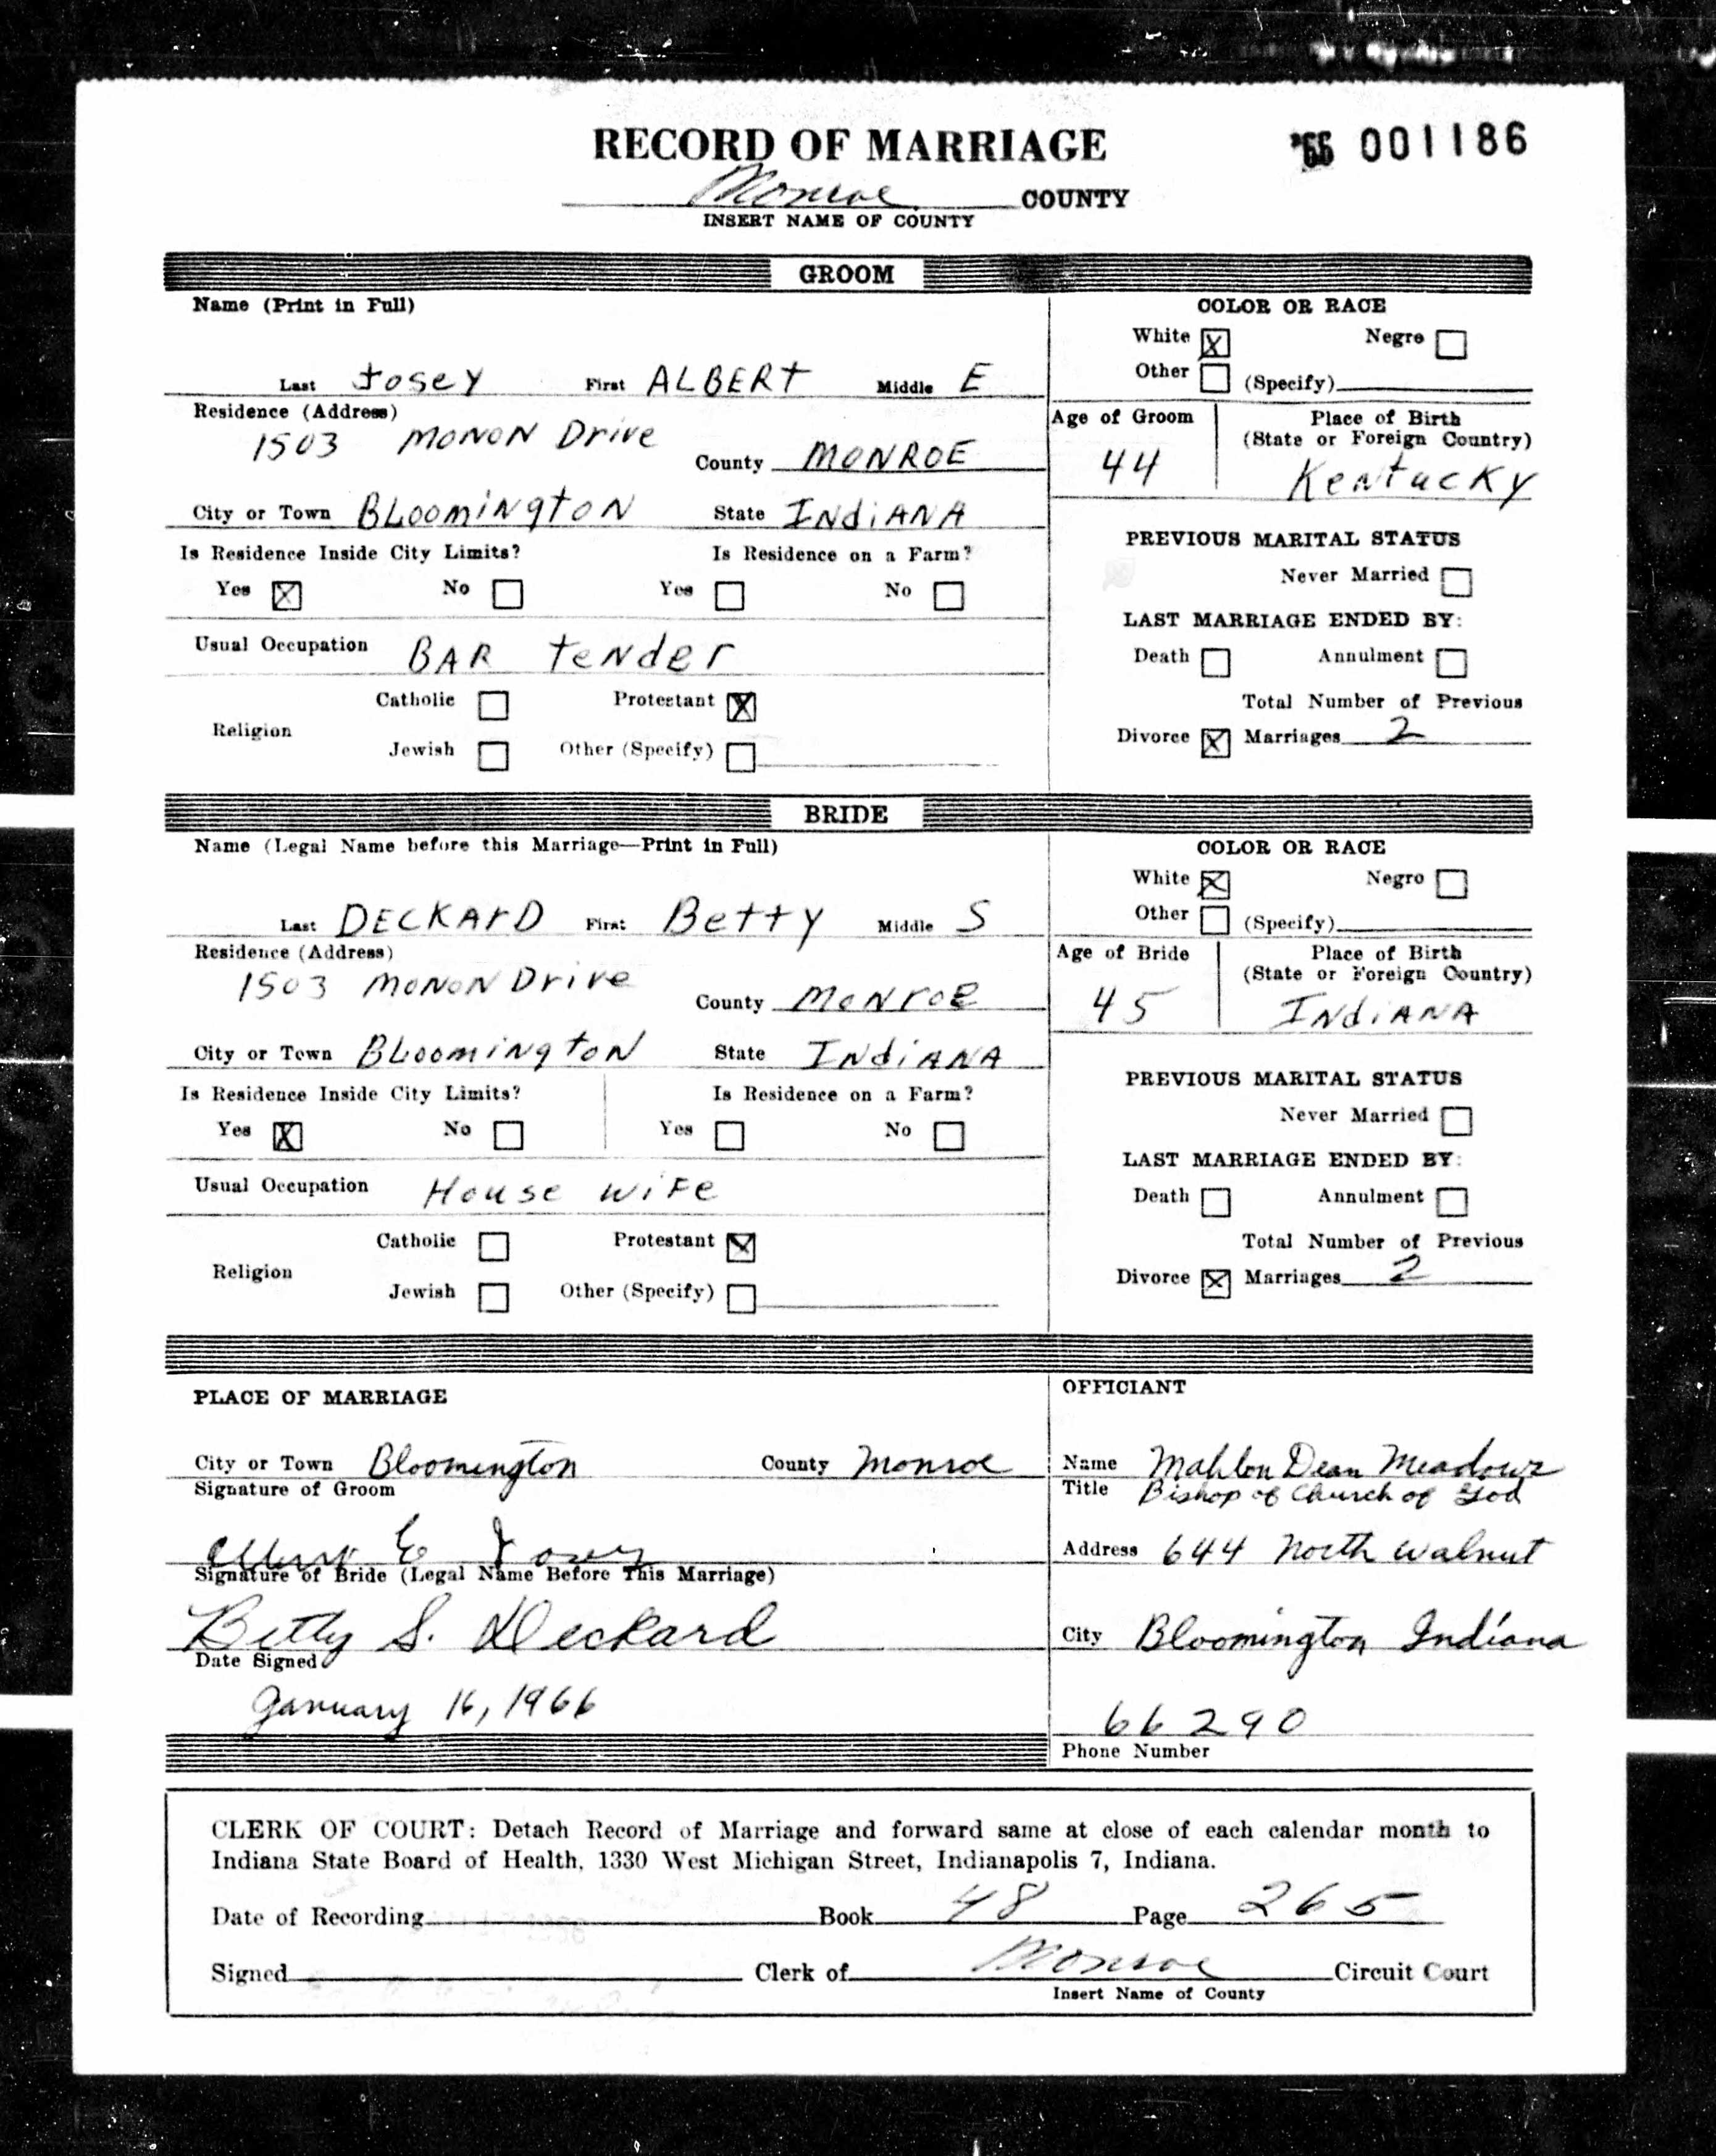 RECORD OF MARRIAGE
'66 001186
Monroe COUNTY
INSERT NAME OF COUNTY
GROOM
Name (Print in Full)
Last Josey First ALBERT Middle E
COLOR OR RACE
White X Negro
Other (Specify)
Residence (Address)
1503 MONON Drive County MONROE
Age of Groom
44
Place of Birth
(State or Foreign Country)
Kentucky
City or Town BLoomiNgtoN State INdiANA
Is Residence Inside City Limits? Is Residence on a Farm?
Yes X No Yes No
PREVIOUS MARITAL STATUS
Never Married
LAST MARRIAGE ENDED BY:
Usual Occupation BAR teNder
Death Annulment
Catholic Protestant X
Religion
Jewish Other (Specify)
Total Number of Previous
Divorce X Marriages 2
BRIDE
Name (Legal Name before this Marriage—Print in Full)
Last DECKArD First Betty Middle S
COLOR OR RACE
White X Negro
Other (Specify)
Residence (Address)
1503 MONON Drive County MONroE
Age of Bride
45
Place of Birth
(State or Foreign Country)
INdiANA
City or Town BLoomiNgtoN State INdiANA
Is Residence Inside City Limits? Is Residence on a Farm?
Yes X No Yes No
PREVIOUS MARITAL STATUS
Never Married
LAST MARRIAGE ENDED BY:
Usual Occupation House wiFe
Death Annulment
Catholic Protestant X
Religion
Jewish Other (Specify)
Total Number of Previous
Divorce X Marriages 2
PLACE OF MARRIAGE
City or Town Bloomington County Monroe
Signature of Groom
Albert E Josey
Signature of Bride (Legal Name Before This Marriage)
Betty S. Deckard
Date Signed
January 16, 1966
OFFICIANT
Name Mahlon Dean Meadows
Title Bishop of Church of God
Address 644 North Walnut
City Bloomington Indiana
66290
Phone Number
CLERK OF COURT: Detach Record of Marriage and forward same at close of each calendar month to
Indiana State Board of Health, 1330 West Michigan Street, Indianapolis 7, Indiana.
Date of Recording Book 48 Page 265
Signed Clerk of Monroe Circuit Court
Insert Name of County